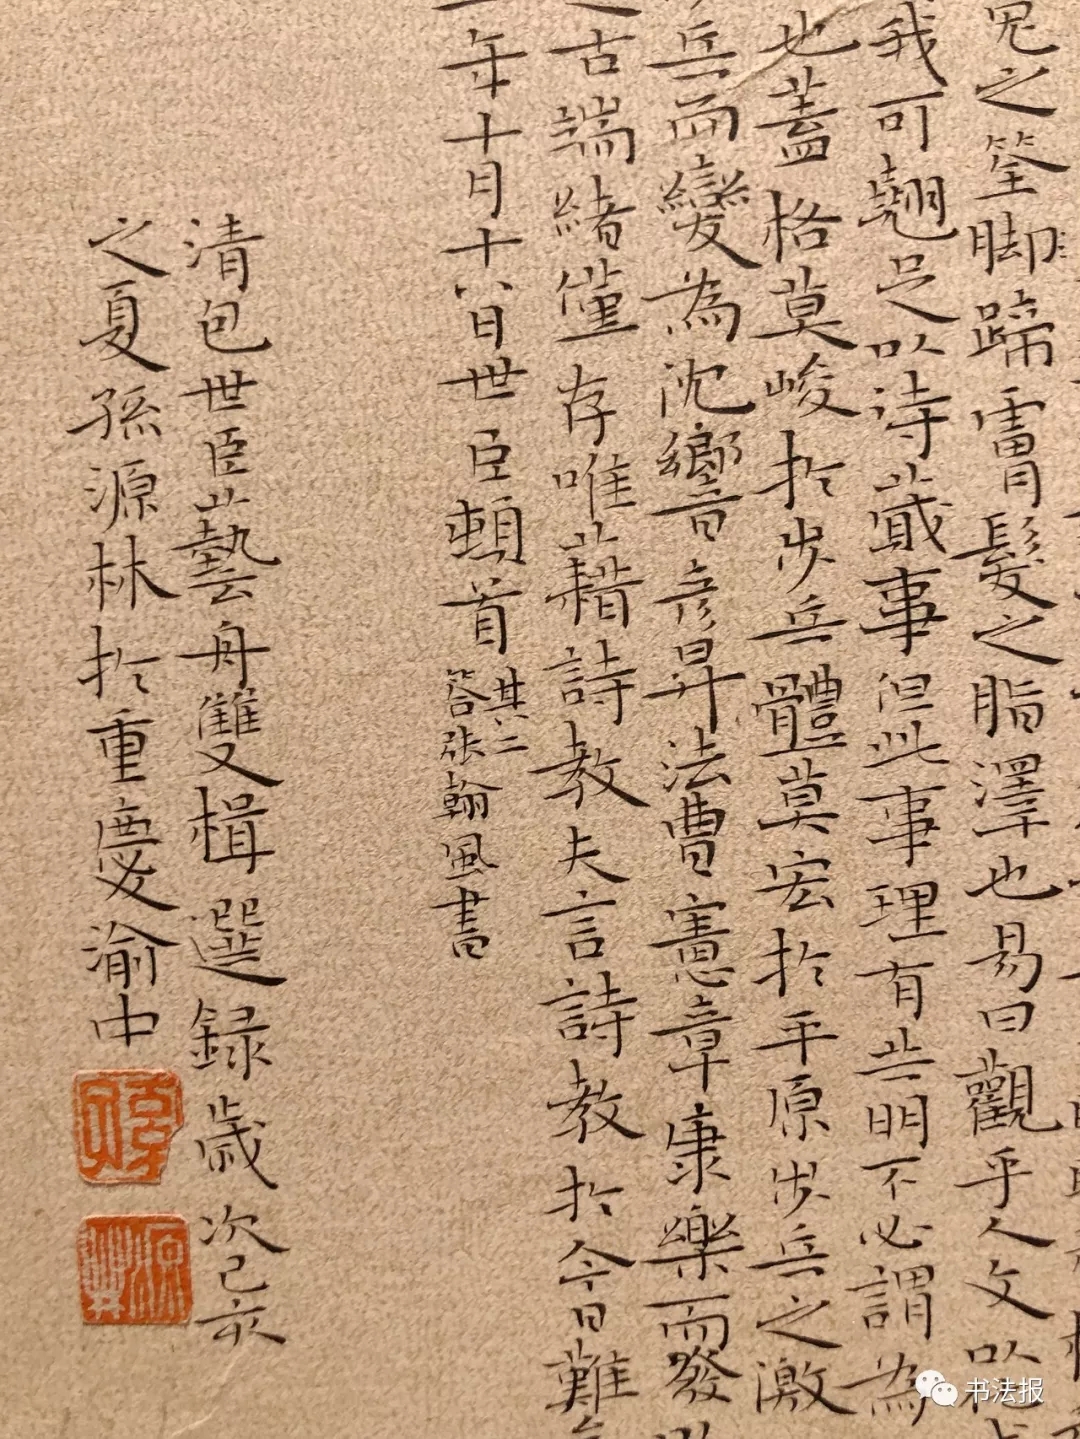 兔之筌脚蹄膏髮之脂澤也易曰觀乎人文以
我可翹足以待蕆事但此事理有些明不必謂為
也蓋格莫峻於步兵體莫宏於平原步兵之激
兵而變為沈響彦昇法曹憲章康樂而發
古端緒僅存唯藉詩教夫言詩教於今日難
年十月十八日世臣頓首
其二
答張翰風書
清包世臣藝舟雙楫選録歲次己亥
之夏孫源林於重慶渝中
书法报